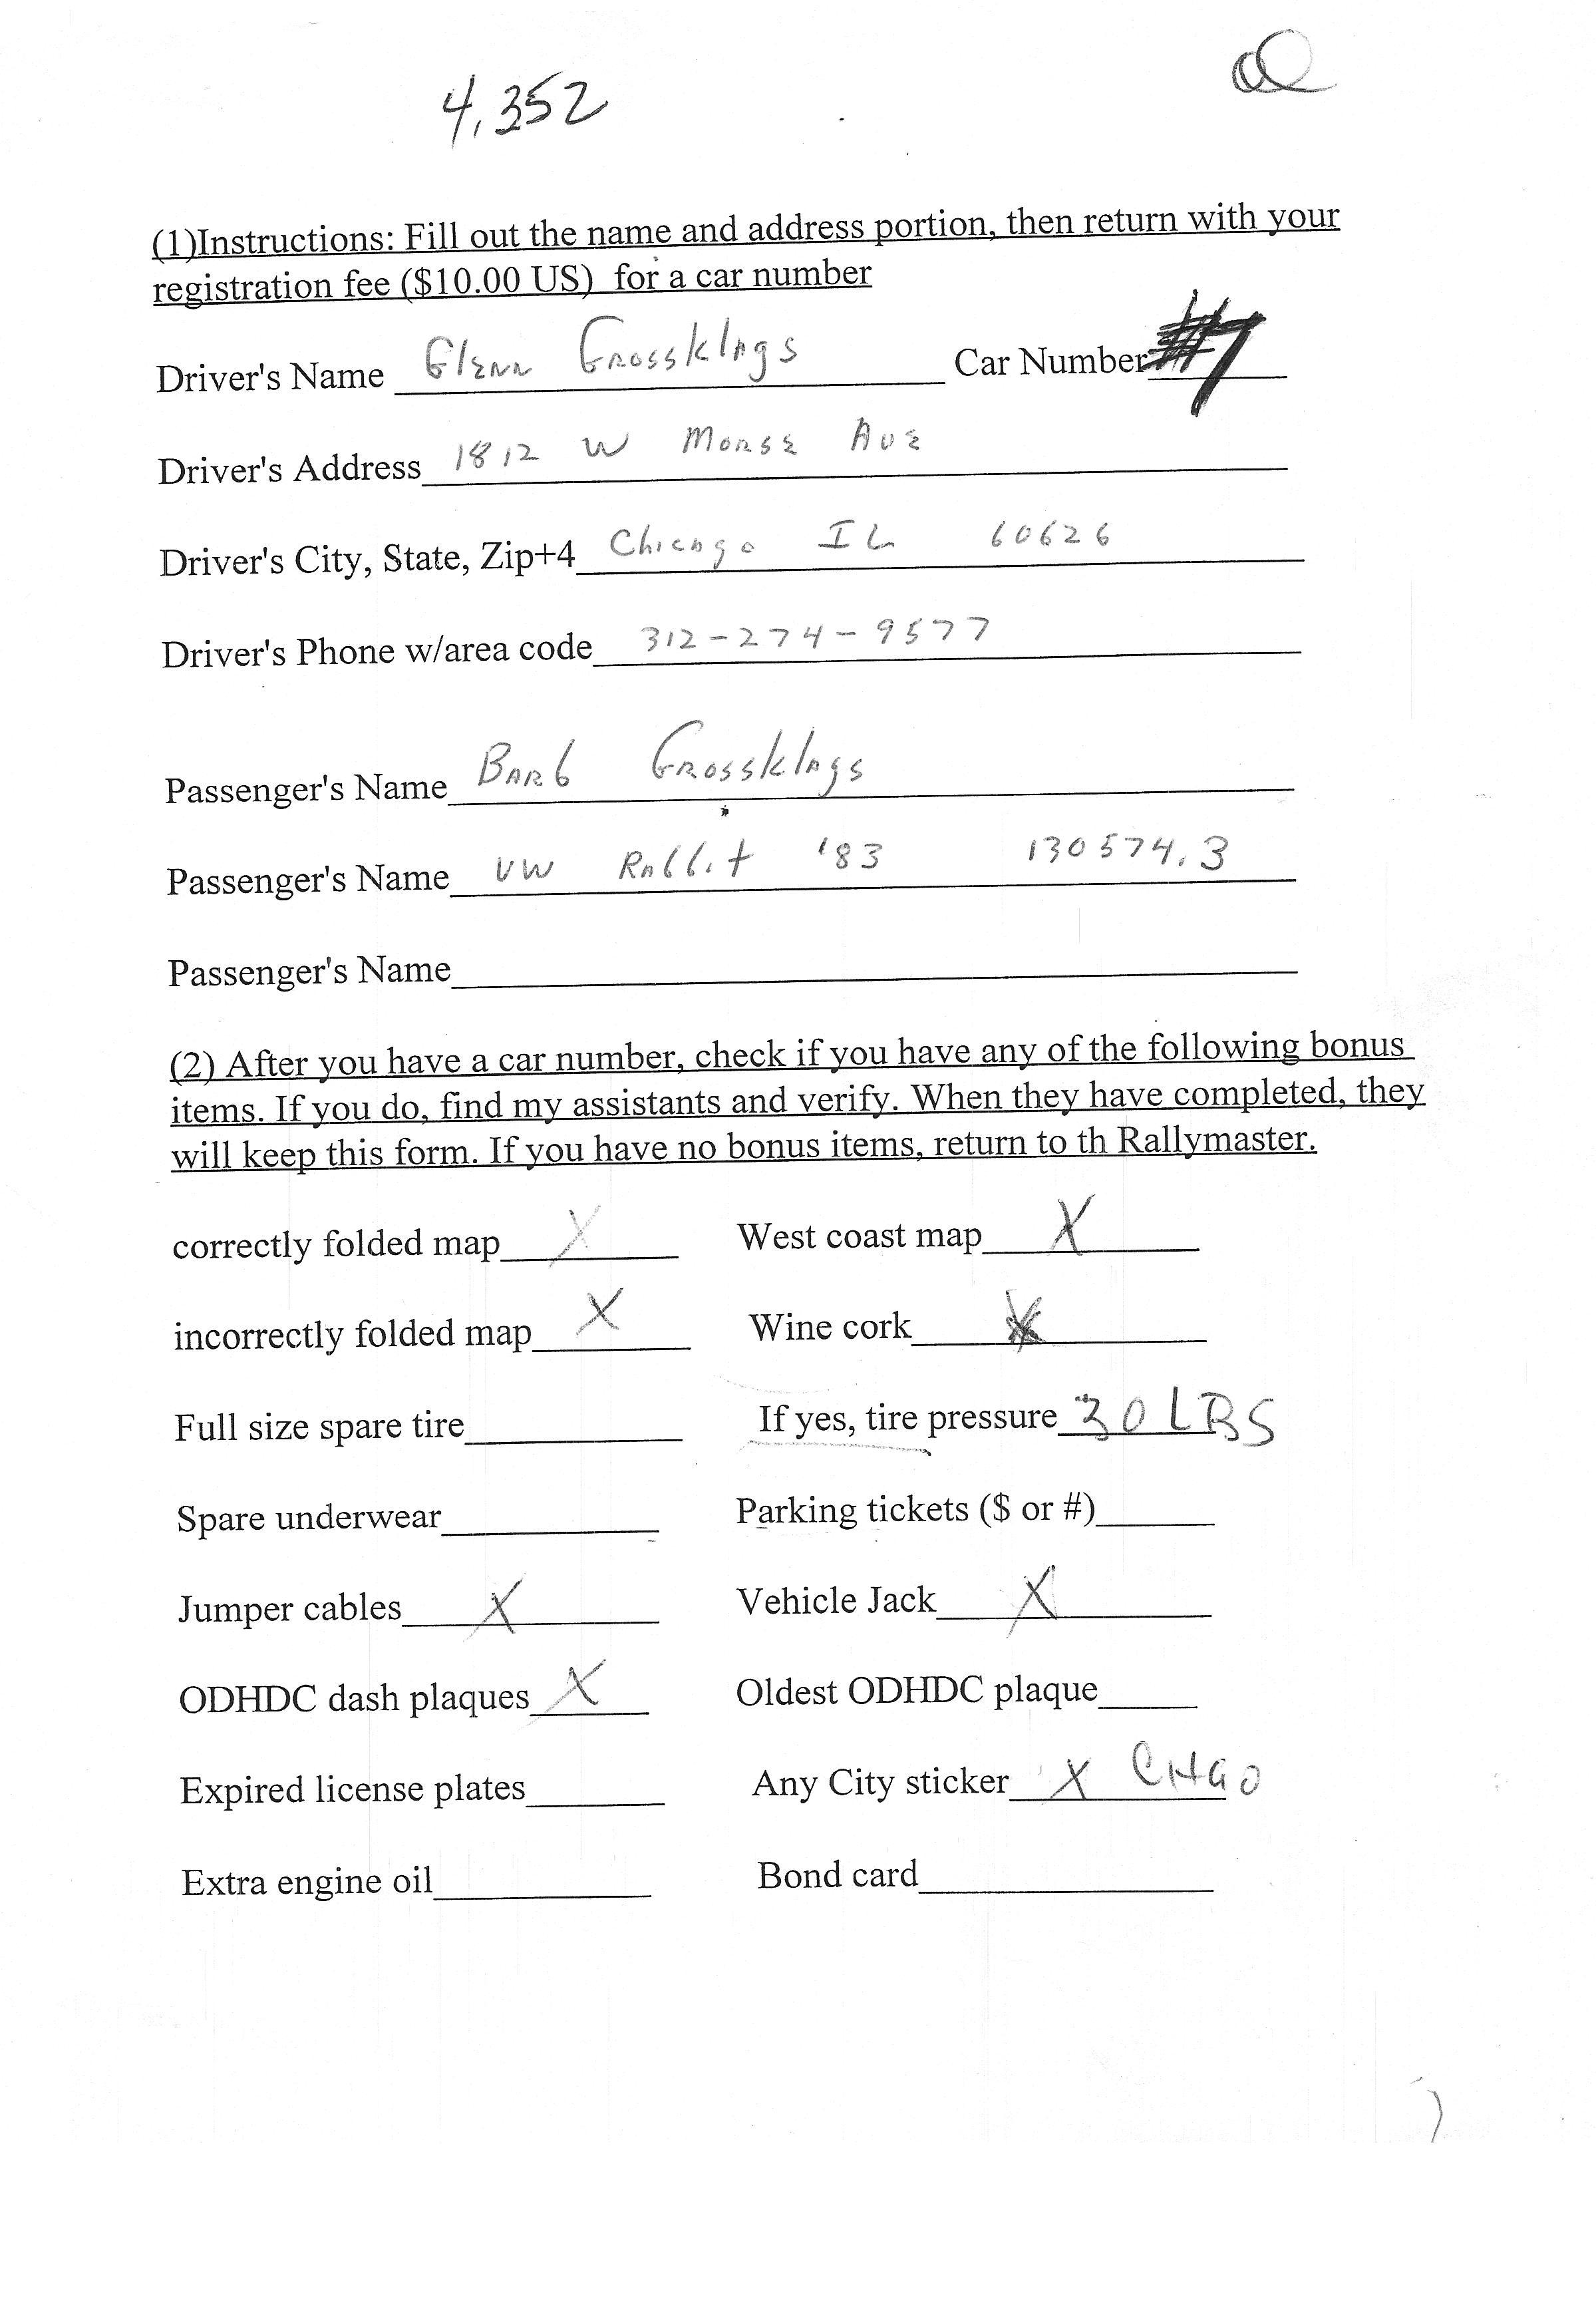 4,352
(1)Instructions: Fill out the name and address portion, then return with your
registration fee ($10.00 US) for a car number
Driver's Name Glenn Grossklags Car Number #7
Driver's Address 1812 W Morse Ave
Driver's City, State, Zip+4 Chicago IL 60626
Driver's Phone w/area code 312-274-9577
Passenger's Name Barb Grossklags
Passenger's Name VW Rabbit '83 130574.3
Passenger's Name
(2) After you have a car number, check if you have any of the following bonus
items. If you do, find my assistants and verify. When they have completed, they
will keep this form. If you have no bonus items, return to th Rallymaster.
correctly folded map X West coast map X
incorrectly folded map X Wine cork X
Full size spare tire If yes, tire pressure 30 LBS
Spare underwear Parking tickets ($ or #)
Jumper cables X Vehicle Jack X
ODHDC dash plaques X Oldest ODHDC plaque
Expired license plates Any City sticker X CHGO
Extra engine oil Bond card